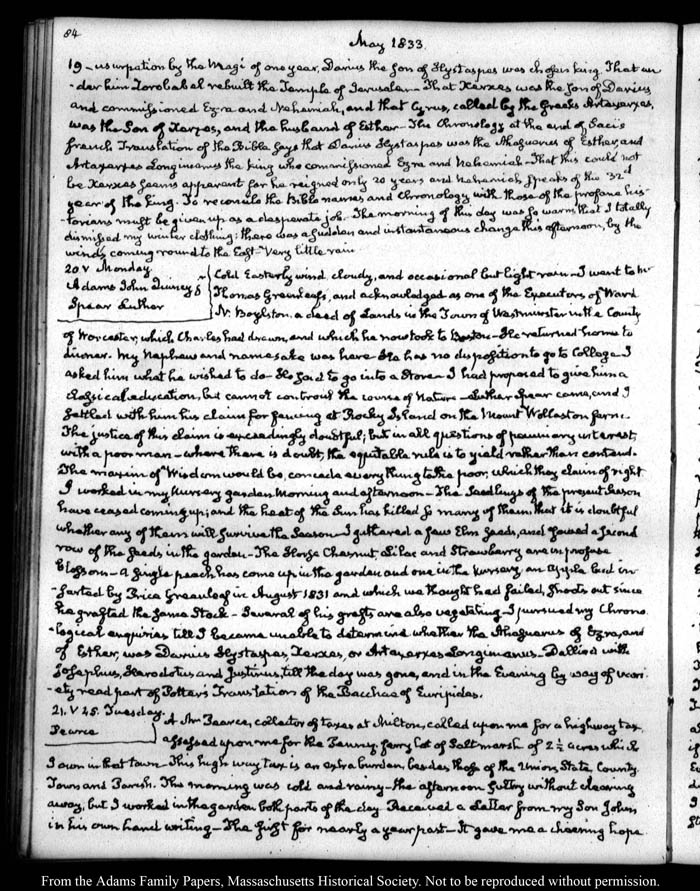 84
May 1833
19 – usurpation by the Magi of one year, Darius the Son of Hystaspes was chosen king. That un
-der him Zorobabel rebuilt the Temple of Jerusalem – That Xerxes was the Son of Darius
and commissioned Ezra and Nehemiah, and that Cyrus, called by the Greeks Artaxerxes,
was the Son of Xerxes, and the husband of Esther – The Chronology at the end of Saci's
french Translation of the Bible says that Darius Hystaspes was the Ahasuerus of Esther, and
Artaxerxes Longimanus the king who commissioned Ezra and Nehemiah – That this could not
be Xerxes seems apparent for he reigned only 20 years and Nehemiah speaks of the 32d
year of the king. To reconcile the Bible names and Chronology with those of the profane his-
-torians must be given up as a desperate job. The morning of this day was so warm, that I totally
dismissed my winter clothing; there was a sudden and instantaneous change this afternoon, by the
winds coming round to the East – Very little rain
20. V Monday.
Adams John Quincy
Spear Luther
Cold Easterly wind, cloudy, and occasional but light rain – I went to Mr
Thomas Greenleaf's, and acknowledged as one of the Executors of Ward
N. Boylston, a deed of Lands in the Town of Westminster in the County
of Worcester, which Charles had drawn, and which he now took to Boston – He returned home to
dinner. My Nephew and namesake was here – He has no disposition to go to College – I
asked him what he wished to do – He said to go into a Store – I had proposed to give him a
classical education, but cannot controul the course of Nature – Luther Spear came, and I
settled with him his claim for fencing at Rocky Island on the Mount Wollaston farm.
The justice of this claim is exceedingly doubtful; but in all questions of pecuniary interest,
with a poor man – where there is doubt, the equitable rule is to yield rather than contend.
The maxim of Wisdom would be, concede every thing to the poor, which they claim of right
I worked in my Nursery garden Morning and afternoon – The Seedlings of the present Season
have ceased coming up; and the heat of the Sun has killed so many of them that it is doubtful
whether any of them will survive the Season – I gathered a few Elm seeds, and sowed a second
row of the seeds in the garden – The Horse Chesnut, Lilac and Strawberry are in profuse
blossom – A single peach has come up in the garden and one in the Nursery. an Apple bud in-
-serted by Price Greenleaf in August 1831 and which we thought had failed, shoots out since
he grafted the same Stock – Several of his grafts are also vegetating – I pursued my Chrono
-logical enquiries till I became unable to determine whether the Ahasuerus of Ezra, and
of Esther, was Darius Hystaspes, Xerxes, or Artaxerxes Longimanus – Dallied with
Josephus, Herodotus and Justinus, till the day was gone, and in the Evening by way of vari-
-ety read part of Potter's Translation of the Bacchae of Euripides.
21. V 45. Tuesday.
Pearce
A Mr Pearce, collector of taxes at Milton, called upon me for a highway tax,
assessed upon me for the Penny ferry lot of Salt marsh of 2½ acres which
I own in that town – This high way tax is an extra burden, besides those of the Union, State, County
Town and Parish. The morning was cold and rainy – the afternoon sultry without clearing
away, but I worked in the garden both parts of the day. Received a Letter from my Son John
in his own hand writing – The first for nearly a year past – It gave me a cheering hope
From the Adams Family Papers, Massachusetts Historical Society. Not to be reproduced without permission.